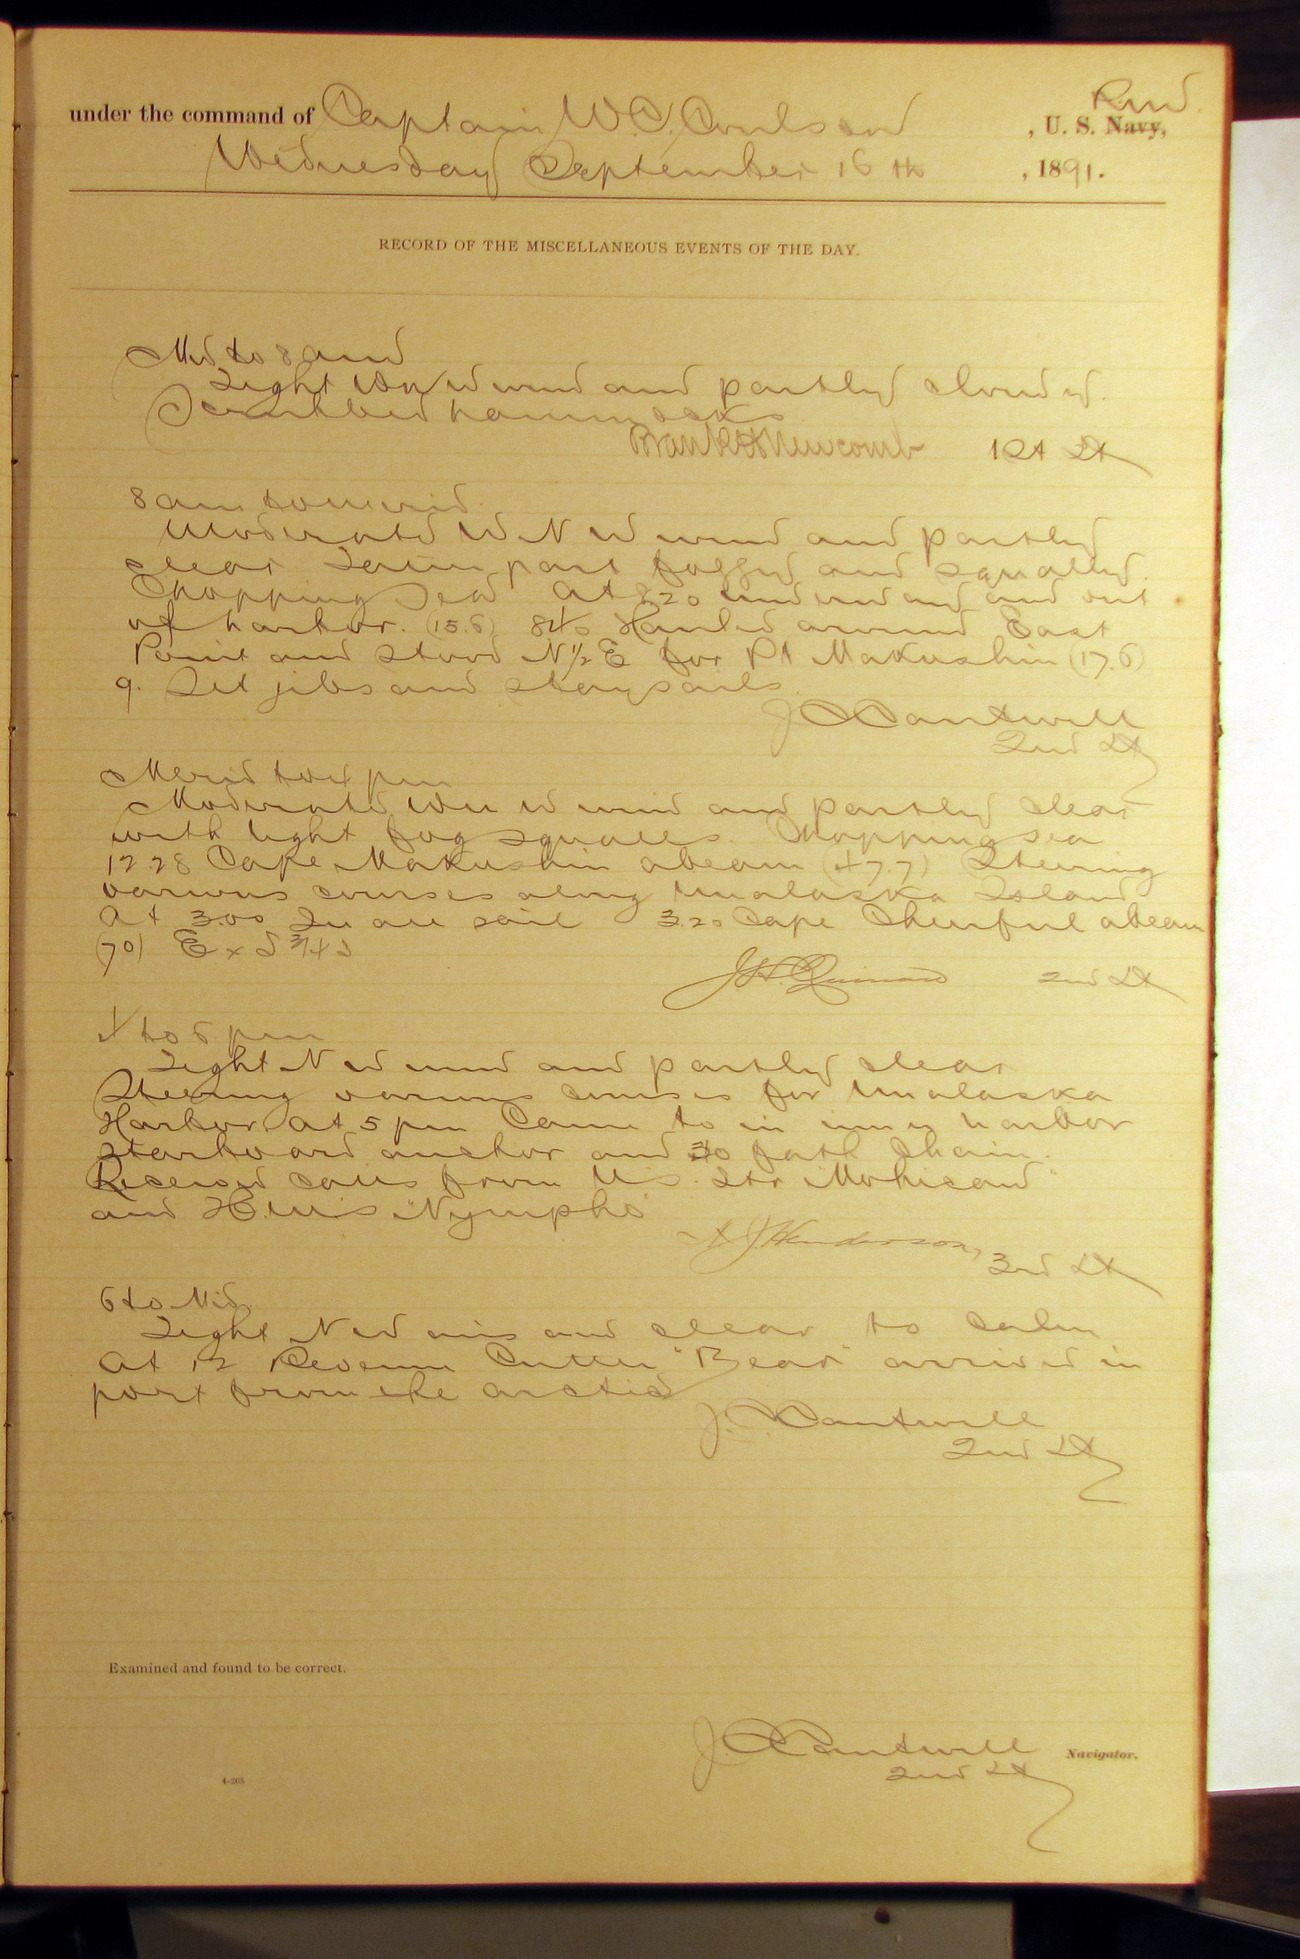 under the command of Captain W. C. Coulson, U. S. Navy, R M
Wednesday September 16th, 1891.
RECORD OF THE MISCELLANEOUS EVENTS OF THE DAY.
Mid to 8 am
Light WNW wind and partly cloudy.
Scrubbed hammocks
Frank H Newcomb 1st Lt
8 am to merid.
Moderate W N W wind and partly
clear Latter part foggy and squally.
Chopping Sea At 8.20 underway and out
of harbor. (15.6) 8.40 Hauled around East
Point and stood N 1/2 E for Pt Makushin (17.6)
9. Set jibs and staysails
J C Cantwell
2nd Lt
Merid to 4 pm
Moderate WNW wind and partly clear
with light fog squalls. Chopping sea
12.28 Cape Makushin abeam (47.7) Steering
various courses along Unalaska Island
At 3.00 In all sail 3.20 Cape Cheerful abeam
(70) E x S 3/4 S
J. H. Quinan 2nd Lt
4 to 6 pm
Light N W wind and partly clear
Steering various courses for Unalaska
Harbor. At 5 pm Came to in inner harbor
starboard anchor and 30 fath Chain.
Received calls from U.S. Str "Mohican"
and H.M.S "Nymphe"
A J Henderson, 3rd Lt
6 to Mid.
Light N W airs and clear to calm
At 12 Revenue Cutter "Bear" arrived in
port from the arctic
J. C. Cantwell
2nd Lt
Examined and found to be correct.
J C Cantwell Navigator.
2nd Lt
4-205